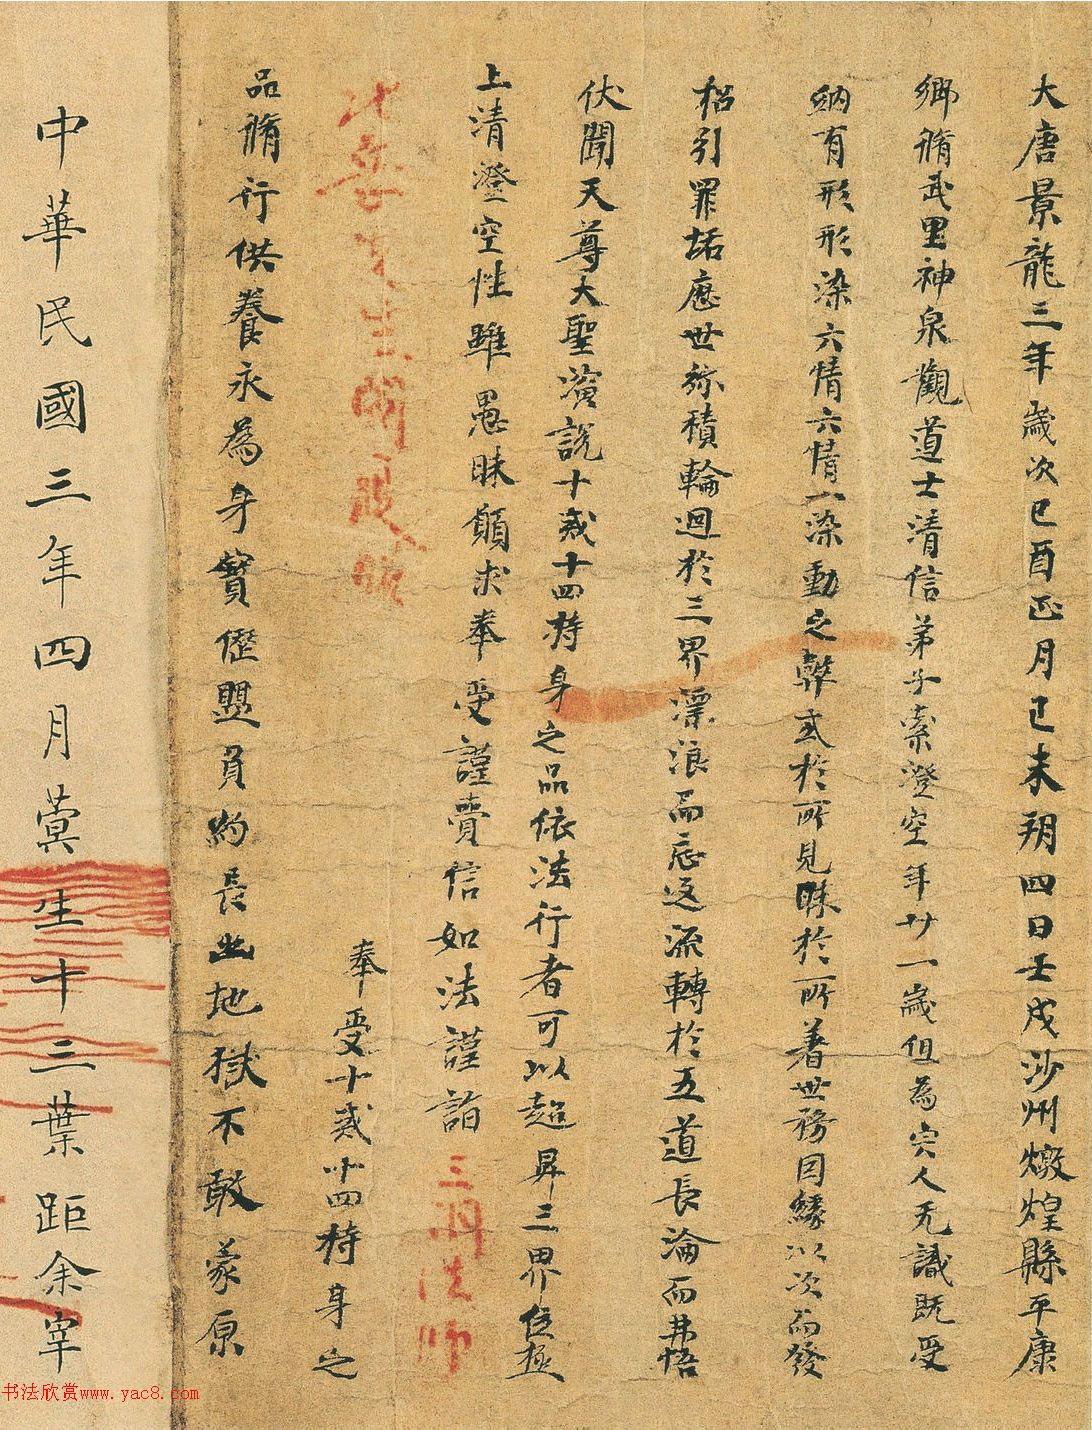 大唐景龍三年歲次己酉五月己未朔四日壬戌沙州燉煌縣平康
鄉脩武里神泉觀道士清信弟子索澄空年廿一歲但為宍人无識既受
納有形形染六情六情一染動之弊或於所見昧於所著世務因緣以次而發
招引罪垢應世弥積輪迴於三界漂浪而忘返流轉於五道長淪而弗悟
伏聞天尊大聖演說十戒十四持身之品依法行者可以超昇三界位極
上清澄空性雖愚昧願求奉受謹賫信如法謹詣三洞法師
北岳先生閻
奉受十戒十四持身之
品脩行供養永為身寶僽盟負約長幽地獄不敢蒙原
中華民國三年四月蓂生十三葉距余宰
书法欣赏www.yac8.com